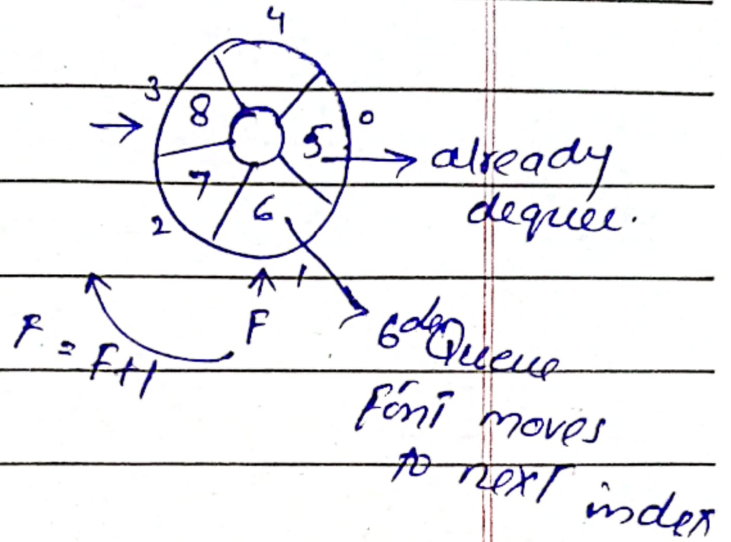 4
3
8
0
5
already
dequeue.
7
6
2
1
F
F = F+1
6 deQueue
Font moves
to next index